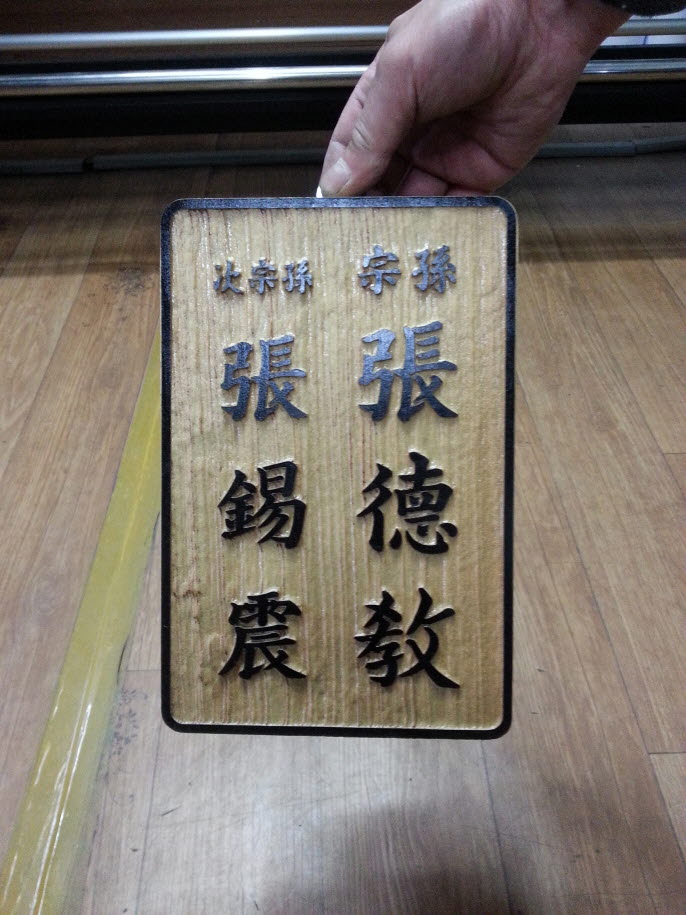 宗孫
張德教
次宗孫
張錫震